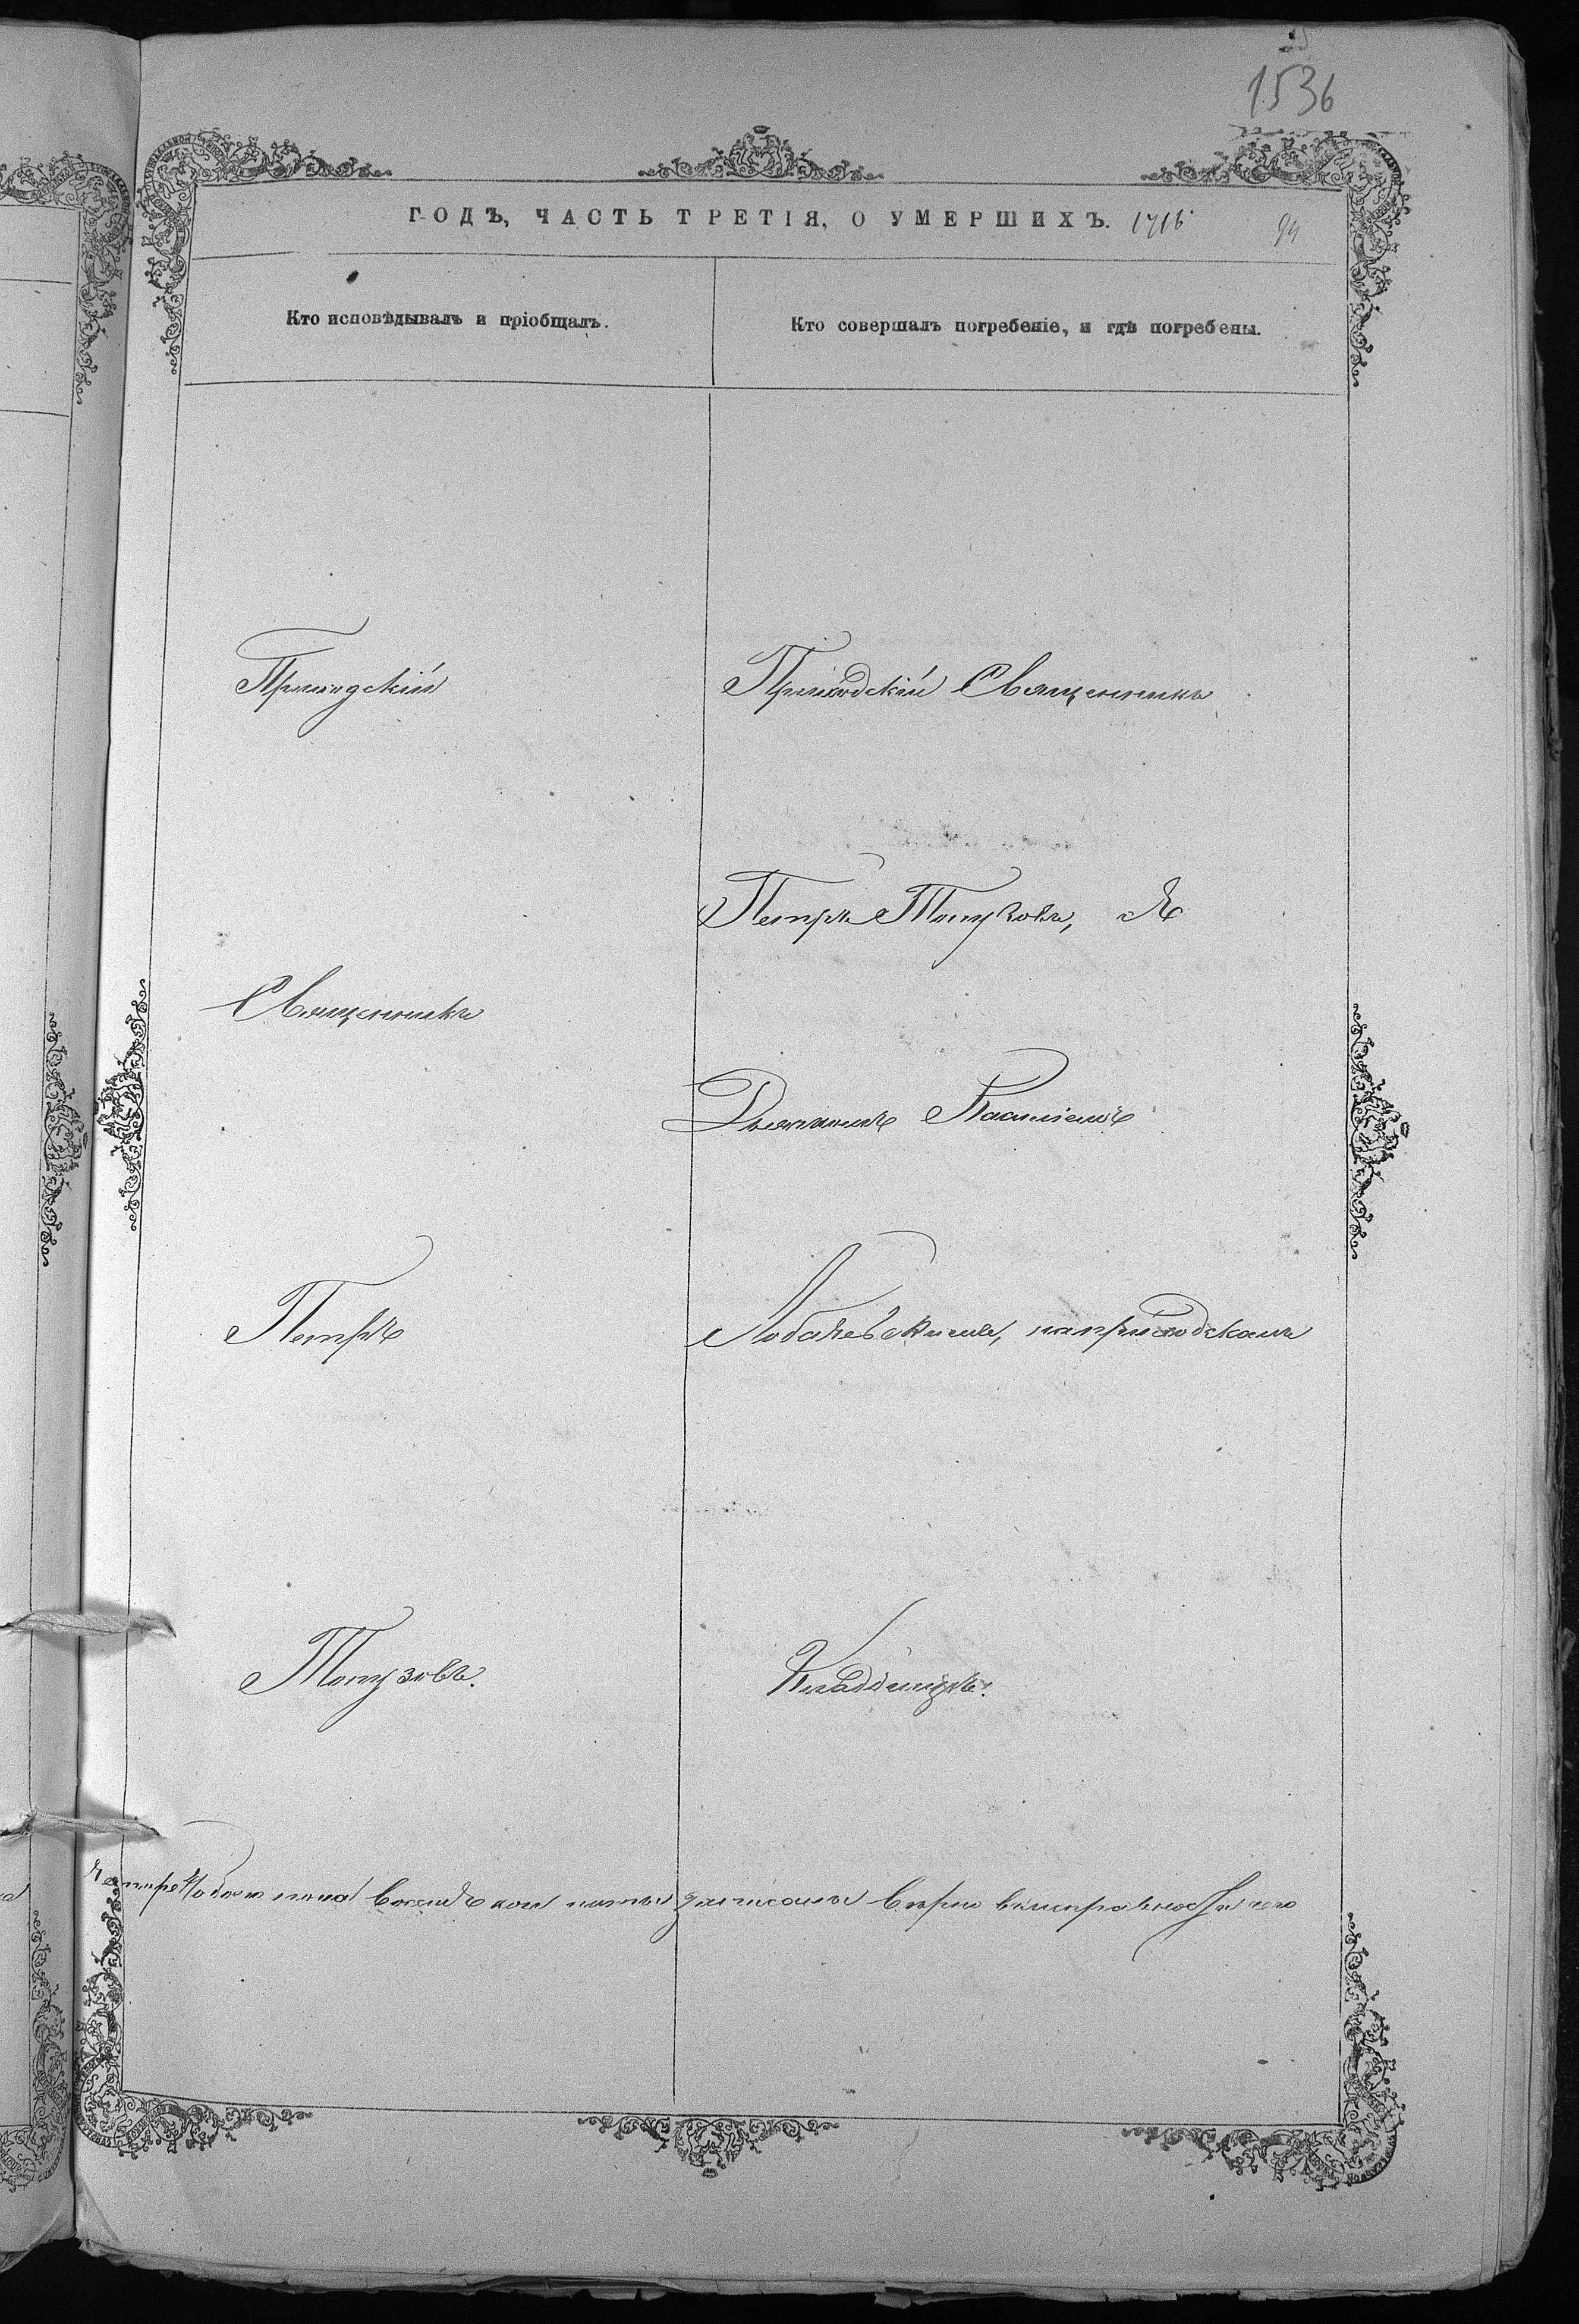 1536
ГОДЪ, ЧАСТЬ ТРЕТІЯ, О УМЕРШИХЪ. 1716
Кто исповѣдывалъ и пріобщалъ.
Кто совершалъ погребеніе, и гдѣ погребены.
Приходскій
Священникъ
Петръ
Топузовъ.
Приходскій Священникъ
Петръ Топузовъ, съ
Дьячкомъ Василіемъ
Лобачевскимъ, на приходскомъ
Кладбищѣ.
записаны вѣрно